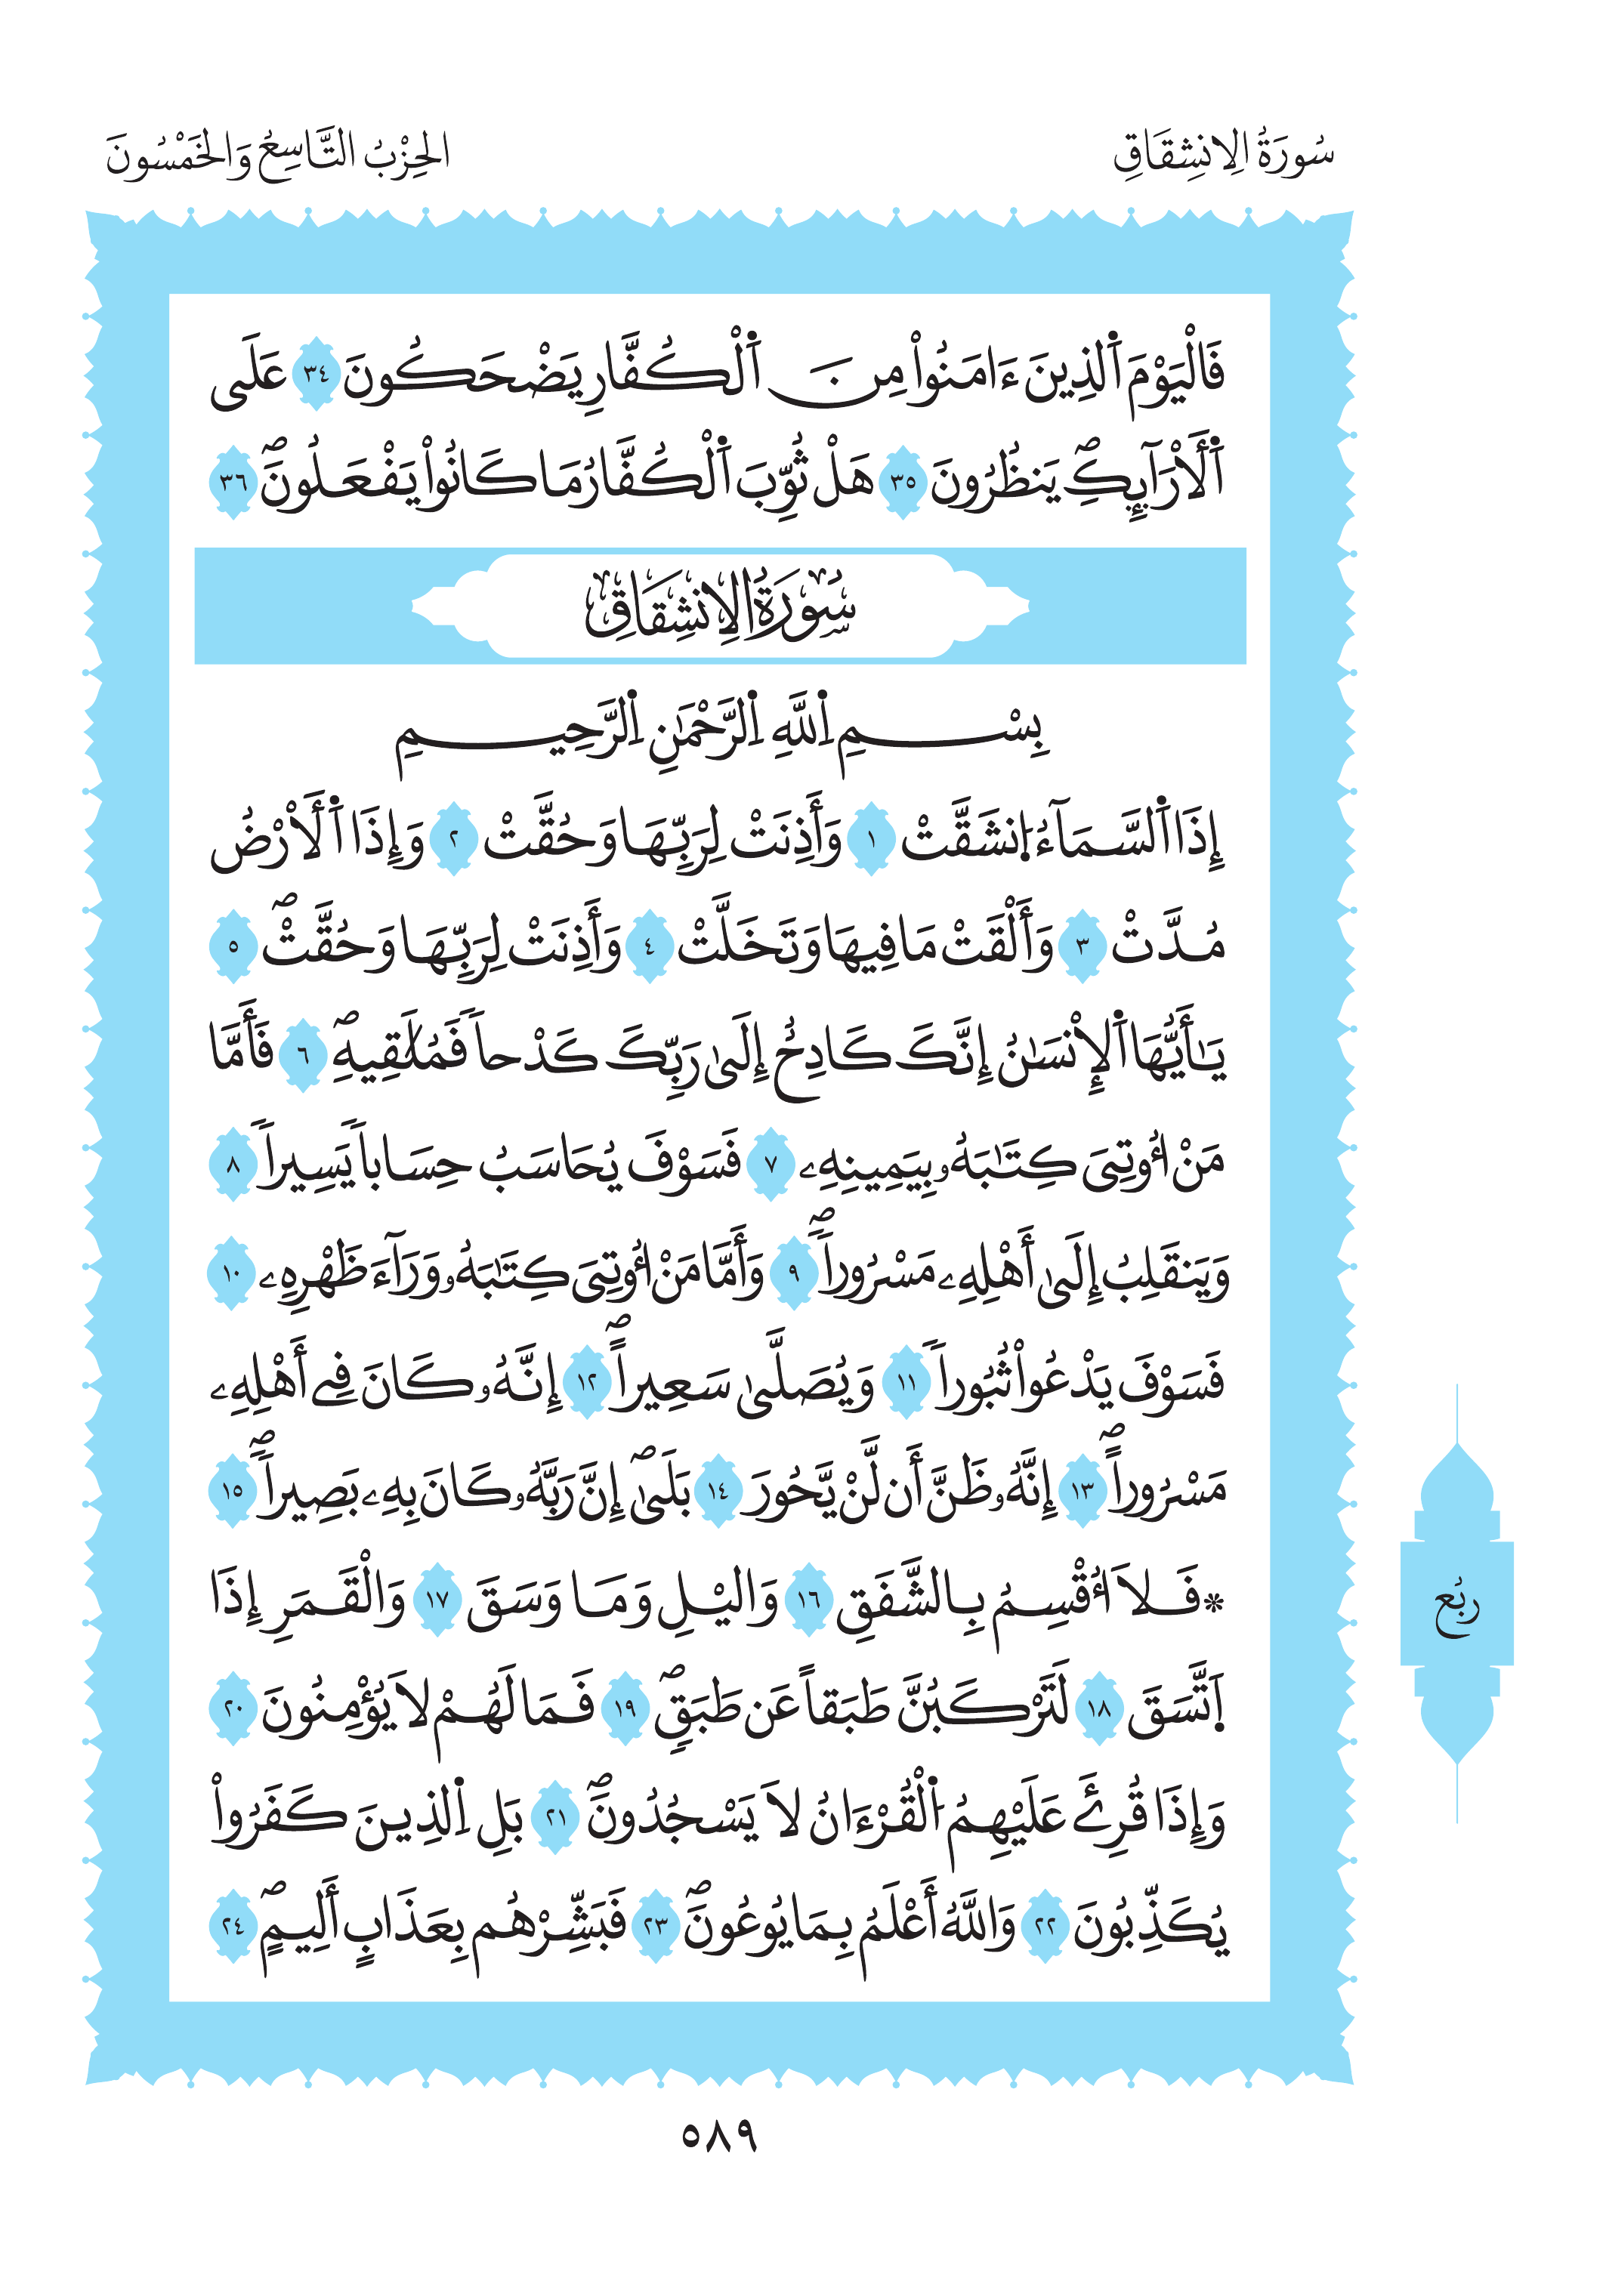 سُورَةُ الِانشِقَاقِ
الحِزْبُ التَّاسِعُ وَالخَمْسُونَ
فَالْيَوْمَ اَ۬لذِينَ ءَامَنُواْ مِنَ اَ۬لْكُفَّارِ يَضْحَكُونَ ٣٤ عَلَي
اَ۬لَارَآئِكِۖ يَنظُرُونَ ٣٥ هَلْ ثُوِّبَ اَ۬لْكُفَّارُ مَا كَانُواْ يَفْعَلُونَۖ ٣٦
سُورَةُ الِانشِقَاقِ
بِسْمِ اِ۬للَّهِ اِ۬لرَّحْمَٰنِ اِ۬لرَّحِيمِ
إِذَا اَ۬لسَّمَآءُ اُ۪نشَقَّتْ ١ وَأَذِنَتْ لِرَبِّهَا وَحُقَّتْ ٢ وَإِذَا اَ۬لَارْضُ
مُدَّتْ ٣ وَأَلْقَتْ مَا فِيهَا وَتَخَلَّتْ ٤ وَأَذِنَتْ لِرَبِّهَا وَحُقَّتْۖ ٥
يَٰأَيُّهَا اَ۬لِانسَٰنُ إِنَّكَ كَادِحٌ إِلَيٰ رَبِّكَ كَدْحاٗ فَمُلَٰقِيهِۖ ٦ فَأَمَّا
مَنُ ا۟وتِيَ كِتَٰبَهُۥ بِيَمِينِهِۦ ٧ فَسَوْفَ يُحَاسَبُ حِسَاباٗ يَسِيراٗ ٨
وَيَنقَلِبُ إِلَيٰ أَهْلِهِۦ مَسْرُوراٗۖ ٩ وَأَمَّا مَنُ ا۟وتِيَ كِتَٰبَهُۥ وَرَآءَ ظَهْرِهِۦ ١٠
فَسَوْفَ يَدْعُواْ ثُبُوراٗ ١١ وَيُصَلَّيٰ سَعِيراًۖ ١٢ إِنَّهُۥ كَانَ فِے أَهْلِهِۦ
مَسْرُوراًۖ ١٣ إِنَّهُۥ ظَنَّ أَن لَّنْ يَّحُورَ ١٤ بَلَيٰۖ إِنَّ رَبَّهُۥ كَانَ بِهِۦ بَصِيراٗۖ ١٥
* فَلَا أُقْسِمُ بِالشَّفَقِ ١٦ وَاليْلِ وَمَا وَسَقَ ١٧ وَالْقَمَرِ إِذَا
اَ۪تَّسَقَ ١٨ لَتَرْكَبُنَّ طَبَقاً عَن طَبَقٖۖ ١٩ فَمَا لَهُمْ لَا يُؤْمِنُونَ ٢٠
وَإِذَا قُرِئَ عَلَيْهِمُ اُ۬لْقُرْءَانُ لَا يَسْجُدُونَۖ ٢١ بَلِ اِ۬لذِينَ كَفَرُواْ
يُكَذِّبُونَ ٢٢ وَاللَّهُ أَعْلَمُ بِمَا يُوعُونَۖ ٢٣ فَبَشِّرْهُم بِعَذَابٍ أَلِيمٍۖ ٢٤
ربُع
٥٨٩